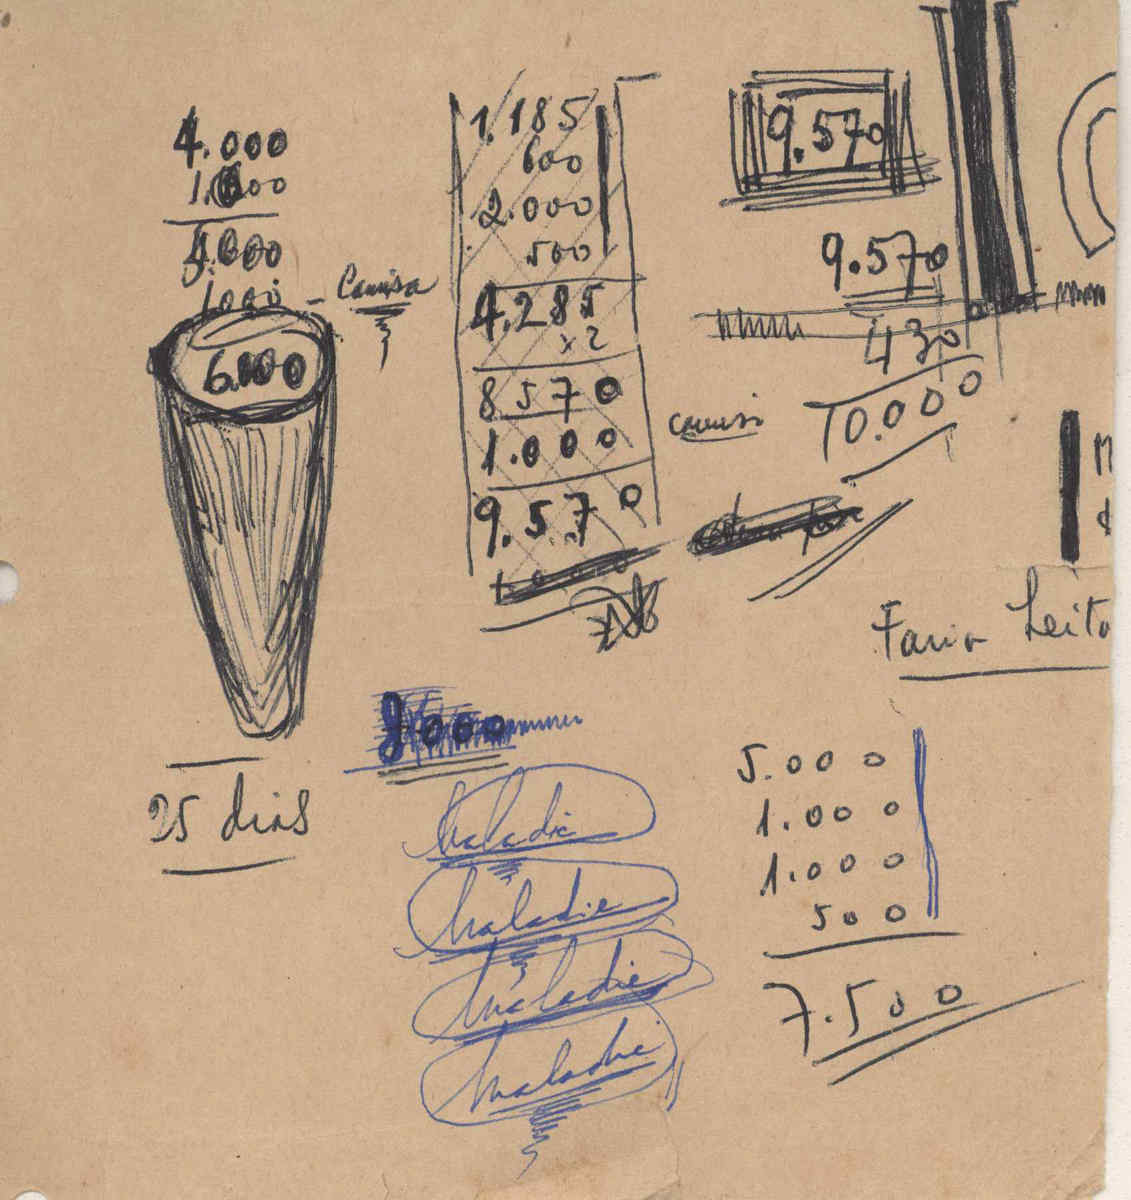 4.000
1.000
5.000
1000 - Camisa
6.000
25 dias
1.185
600
2.000
500
4.285
x 2
8570
1.000
9.570
9.570
9.570
430
10.000
Faria Leito
8000
Maladie
Maladie
Maladie
Maladie
5.000
1.000
1.000
500
7.500